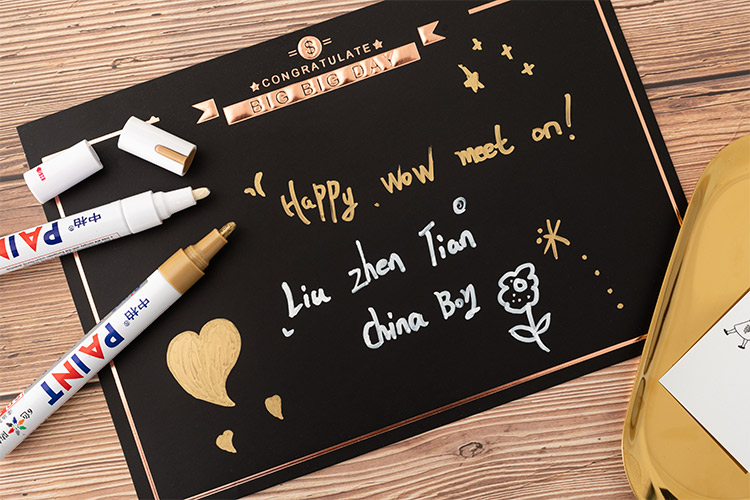 CONGRATULATE
BIG BIG DAY
Happy wow meet on!
Liu zhen Tian
China Boy
中柏® PAINT
中柏® PAINT